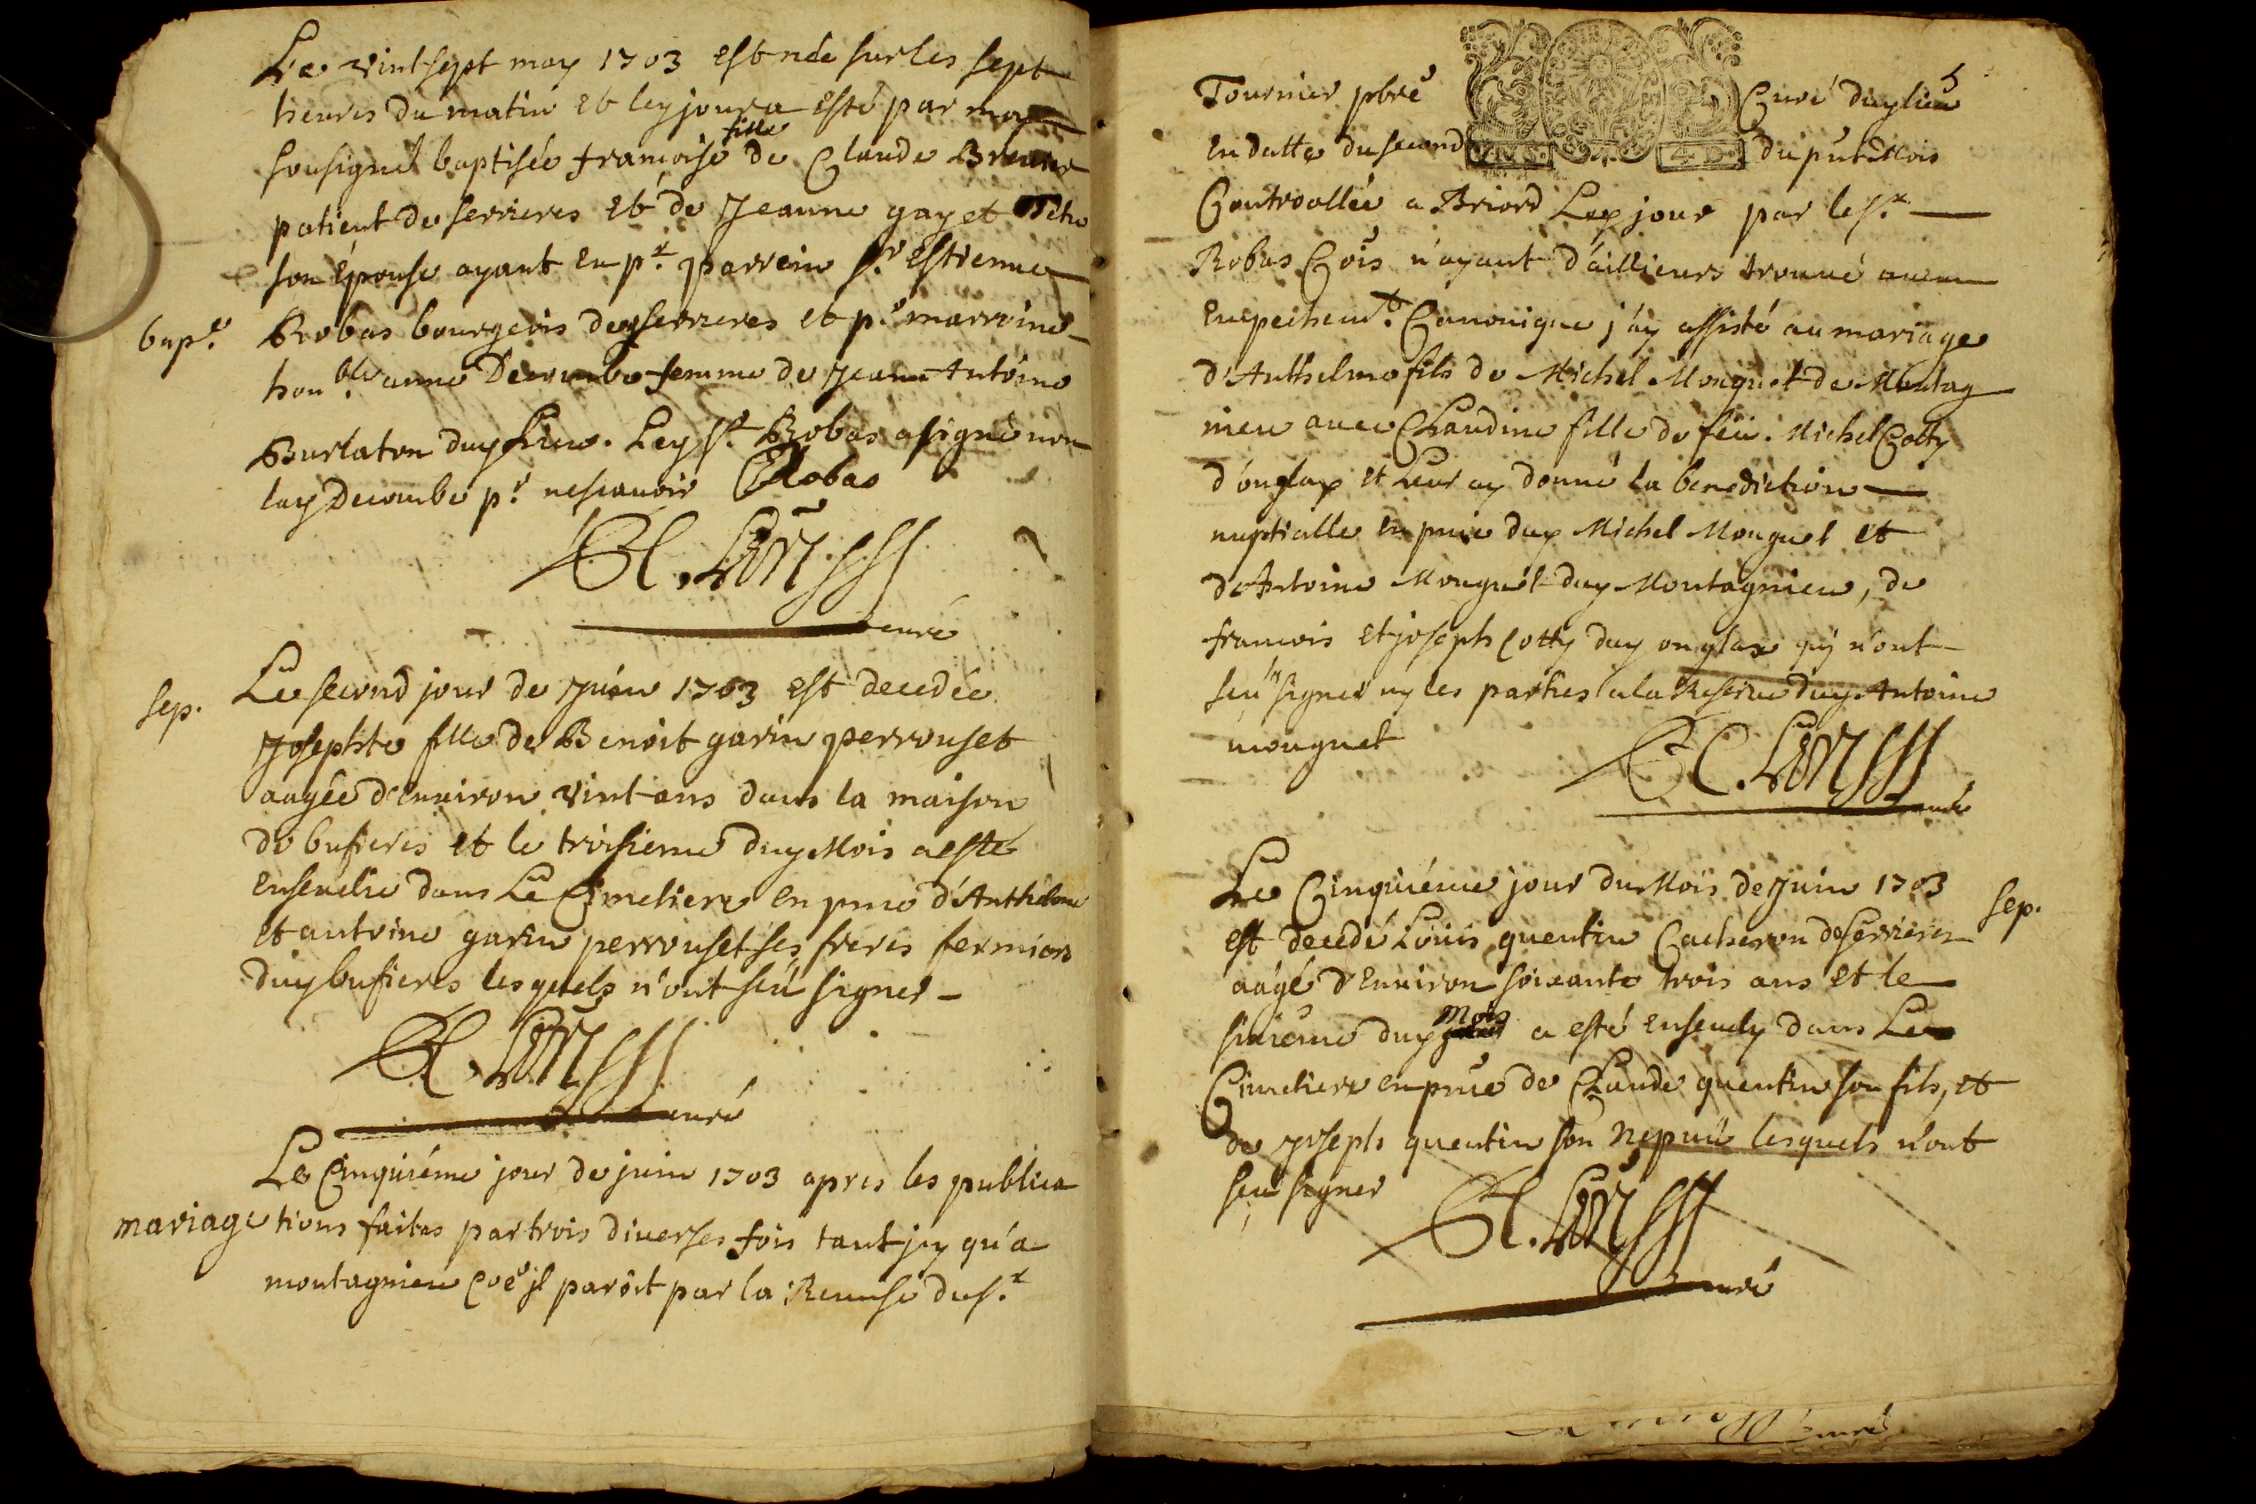 Le vint sept may 1703 est née sur les sept
heures du matin et led jour a esté par moy
sousigné baptisée francoise fille de Claude
patient de serrieres et de Jeanne gay et
son épouse ayant en pr. parrein sr. Estienne
bapt. Robas bourgeois dud serrieres et pr. marreine
honble. anne Decombe femme de Jeane Antoine
Burlaton dud lieu. Led sr. Robas a signé non
lad Decombe pr. ne scauoir Robas
curé
sep. Le second jour de Juin 1703 est decedée
Josephte fille de Benoit garin perrouset
aagée d'enuiron vint ans dans la maison
de bufieres et le troisieme dud Mois a esté
enseuelie dans Le Cimetiere en pnce d'Anthelme
et antoine garin perrouset ses freres fermiers
dud bufieres lesquels n'ont sçu signer
curé
Le Cinquiéme jour de juin 1703 apres les publica
mariage tions faites par trois diuerses fois tant icy qu'a
montagnieu coe il paroit par la Remise du sr.
Tournier pbre Curé dud lieu
en datte du second du pnt Mois
Controollée a Briord Led jour par le sr.
Robas Cois n'ayant d'aillieurs trouué aucun
Empechemt. Canonique j'ay assisté au mariage
d'Anthelme fils de Michel Mouguet de Montag
nieu auec Claudine fille de feu. Michel Cotty
d'onglax et Leur ay donné la benediction
nuptialle en pnce dud Michel Mouguet et
d'Antoine Mouguet dud Montagnieu, de
francois et joseph Cotty dud onglax qui n'ont
sçu signer ny les parties a la Reserue dud Antoine
mouguet
curé
Le Cinquiéme jour du Mois de Juin 1703
sep.
est decedé Loüis quentin Cacheron de Serrieres
aagé d'enuiron soixante trois ans et le
sixieme dud Mois a esté enseuely dans Le
Cimetiere en pnce de Claude quentin son fils, et
de Joseph quentin son nepueu lesquels n'ont
sçu signer
curé
curé